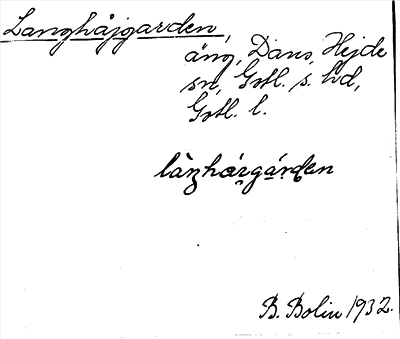 Langhåjgarden,
äng, Dans, Hejde
sn, Gotl. s. hd,
Gotl. l.
B. Bolin 1932.